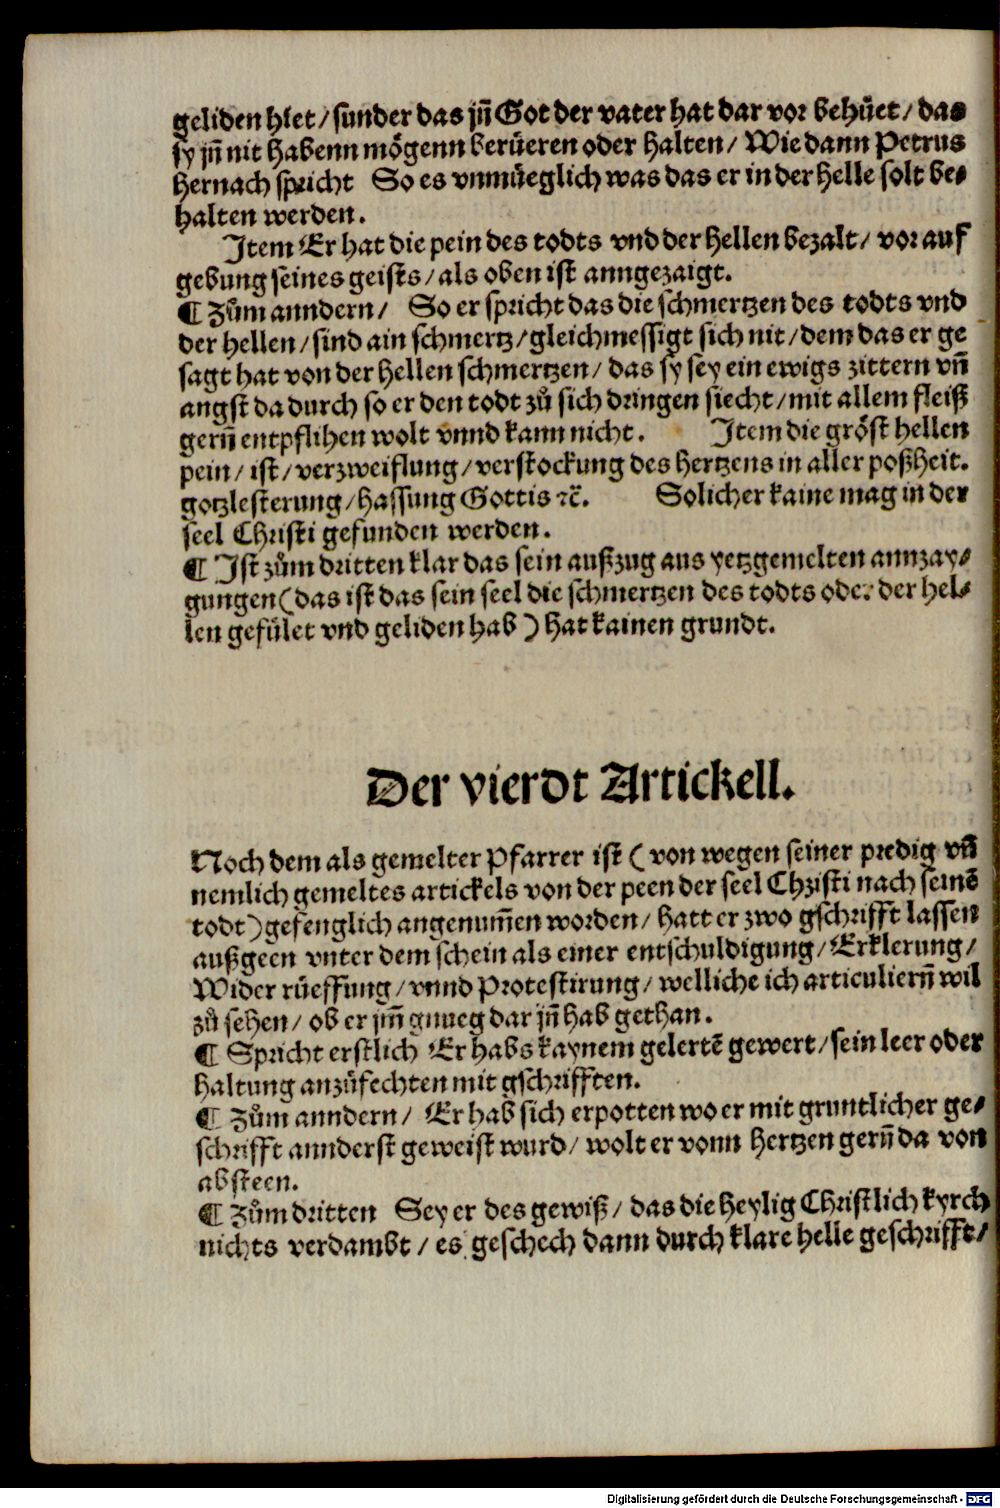 geliden hiet / sunder das jn̄ Got der vater hat dar vor behüet / das
sy jn̄ nit habenn mögenn berüeren oder halten / Wie dann Petrus
hernach spricht So es vnmüeglich was das er in der helle solt be⸗
halten werden.
Item Er hat die pein des todts vnd der hellen bezalt / vor auf
gebung seines geists / als oben ist anngezaigt.
¶ Zům anndern / So er spricht das die schmertzen des todts vnd
der hellen / sind ain schmertz / gleichmessigt sich nit / dem das er ge
sagt hat von der hellen schmertzen / das sy sey ein ewigs zittern vn̄
angst da durch so er den todt zů sich dringen siecht / mit allem fleiß
gern̄ entpflihen wolt vnnd kann nicht. Item die gröst hellen
pein / ist / verzweiflung / verstockung des hertzens in aller poßheit.
gotzlesterung / hassung Gottis ꝛc̄. Solicher kaine mag in der
seel Christi gefunden werden.
¶ Ist zům dritten klar das sein außzug aus yetzgemelten annzay⸗
gungen (das ist das sein seel die schmertzen des todts oder der hel⸗
len gefület vnd geliden hab) hat kainen grundt.
Der vierdt Artickell.
Noch dem als gemelter Pfarrer ist (von wegen seiner predig vn̄
nemlich gemeltes artickels von der peen der seel Christi nach seinē
todt) gefenglich angenum̄en worden / hatt er zwo gschrifft lassen
außgeen vnter dem schein als einer entschuldigung / Erklerung /
Wider rüeffung / vnnd Protestirung / welliche ich articuliern̄ wil
zů sehen / ob er jm̄ gnueg dar jn̄ hab gethan.
¶ Spricht erstlich Er habs kaynem gelertē gewert / sein leer oder
haltung anzůfechten mit gschrifften.
¶ Zům anndern / Er hab sich erpotten wo er mit gruntlicher ge⸗
schrifft annderst geweist wurd / wolt er vonn hertzen gern̄ da von
absteen.
¶ Zům dritten Sey er des gewiß / das die heylig Christlich kyrch
nichts verdambt / es geschech dann durch klare helle geschrifft /
Digitalisierung gefördert durch die Deutsche Forschungsgemeinschaft - DFG